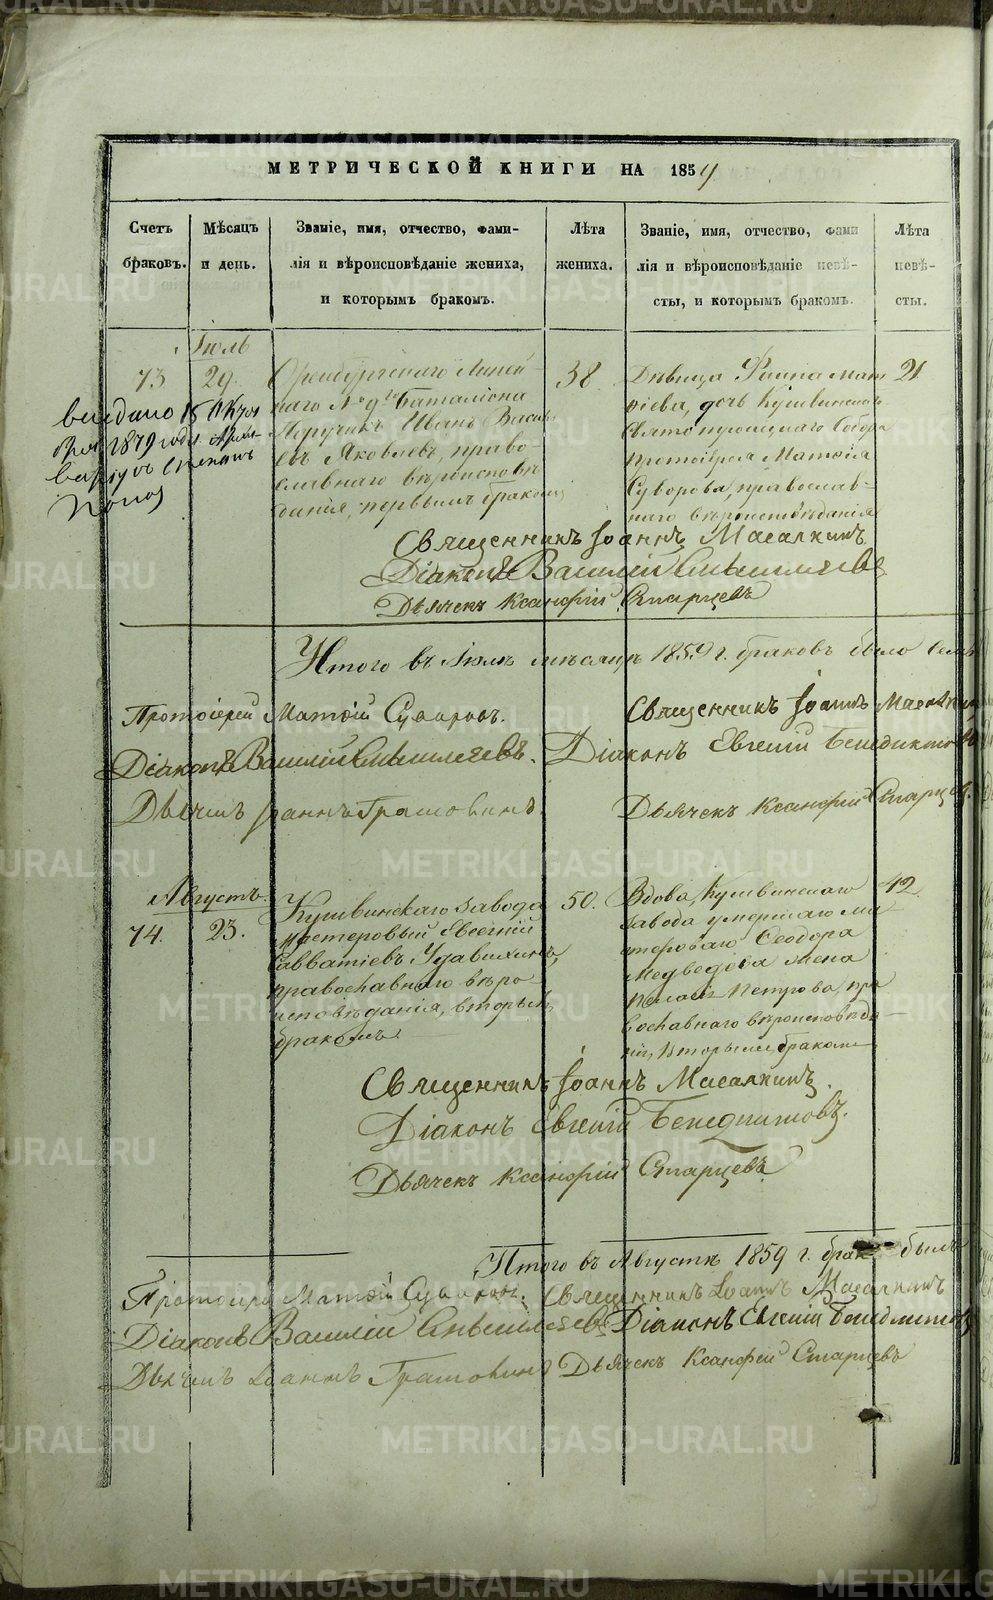 МЕТРИЧЕСКОЙ КНИГИ НА 1859
Счетъ
браковъ.
Мѣсяцъ
и день.
Званіе, имя, отчество, фами-
лія и вѣроисповѣданіе жениха,
и которымъ бракомъ.
Лѣта
жениха.
Званіе, имя, отчество, фами
лія и вѣроисповѣданіе невѣ-
сты, и которымъ бракомъ.
Лѣта
невѣ-
сты.
Іюль
73
29.
Оренбургскаго Линей
наго № Баталіона
Поручикъ Иванъ Василь
евъ Яковлевъ, право
славнаго вѣроисповѣ
данія, первымъ бракомъ
38.
Дѣвица Фаина Мат
ѳіева, дочь Кушвинскаго
Свято троицкаго Собора
протоіерея Матѳія
Суворова, православ-
наго вѣроисповѣданія
21
выдано 15 Октя
бря 1879 года
Попов
Священникъ Іоаннъ Масалкинъ
Діаконъ Василій
Дьячекъ Ксанфій Старцевъ
Итого въ Іюлѣ мѣсяцѣ 1859 г. браковъ было
Протоіерей Матѳій Суворовъ.
Священникъ Іоаннъ
Діаконъ Василій
Діаконъ Евгеній
Іоаннъ
Дьячекъ Ксанфій Старцевъ.
Августъ.
74.
23.
Кушвинскаго завода
мастеровый Евсегній
Савватіевъ
православнаго вѣро
исповѣданія, вторымъ
бракомъ
50.
Вдова, Кушвинскаго
завода умершаго ма
стероваго Ѳеодора
Медведева жена
Пелагія Петрова, пра
вославнаго вѣроисповѣда
нія, вторымъ бракомъ
42
Священникъ Іоаннъ Масалкинъ.
Діаконъ Евгеній Бенедиктовъ.
Дьячекъ Ксанфій Старцевъ
Итого въ Августѣ 1859 г. былъ
Протоіерей Матѳій Суворовъ.
Священникъ Іоаннъ Масалкинъ
Діаконъ Василій
Діаконъ Евгеній Бенедиктовъ
Іоаннъ
Дьячекъ Ксанфій Старцевъ
METRIKI.GASO-URAL.RU